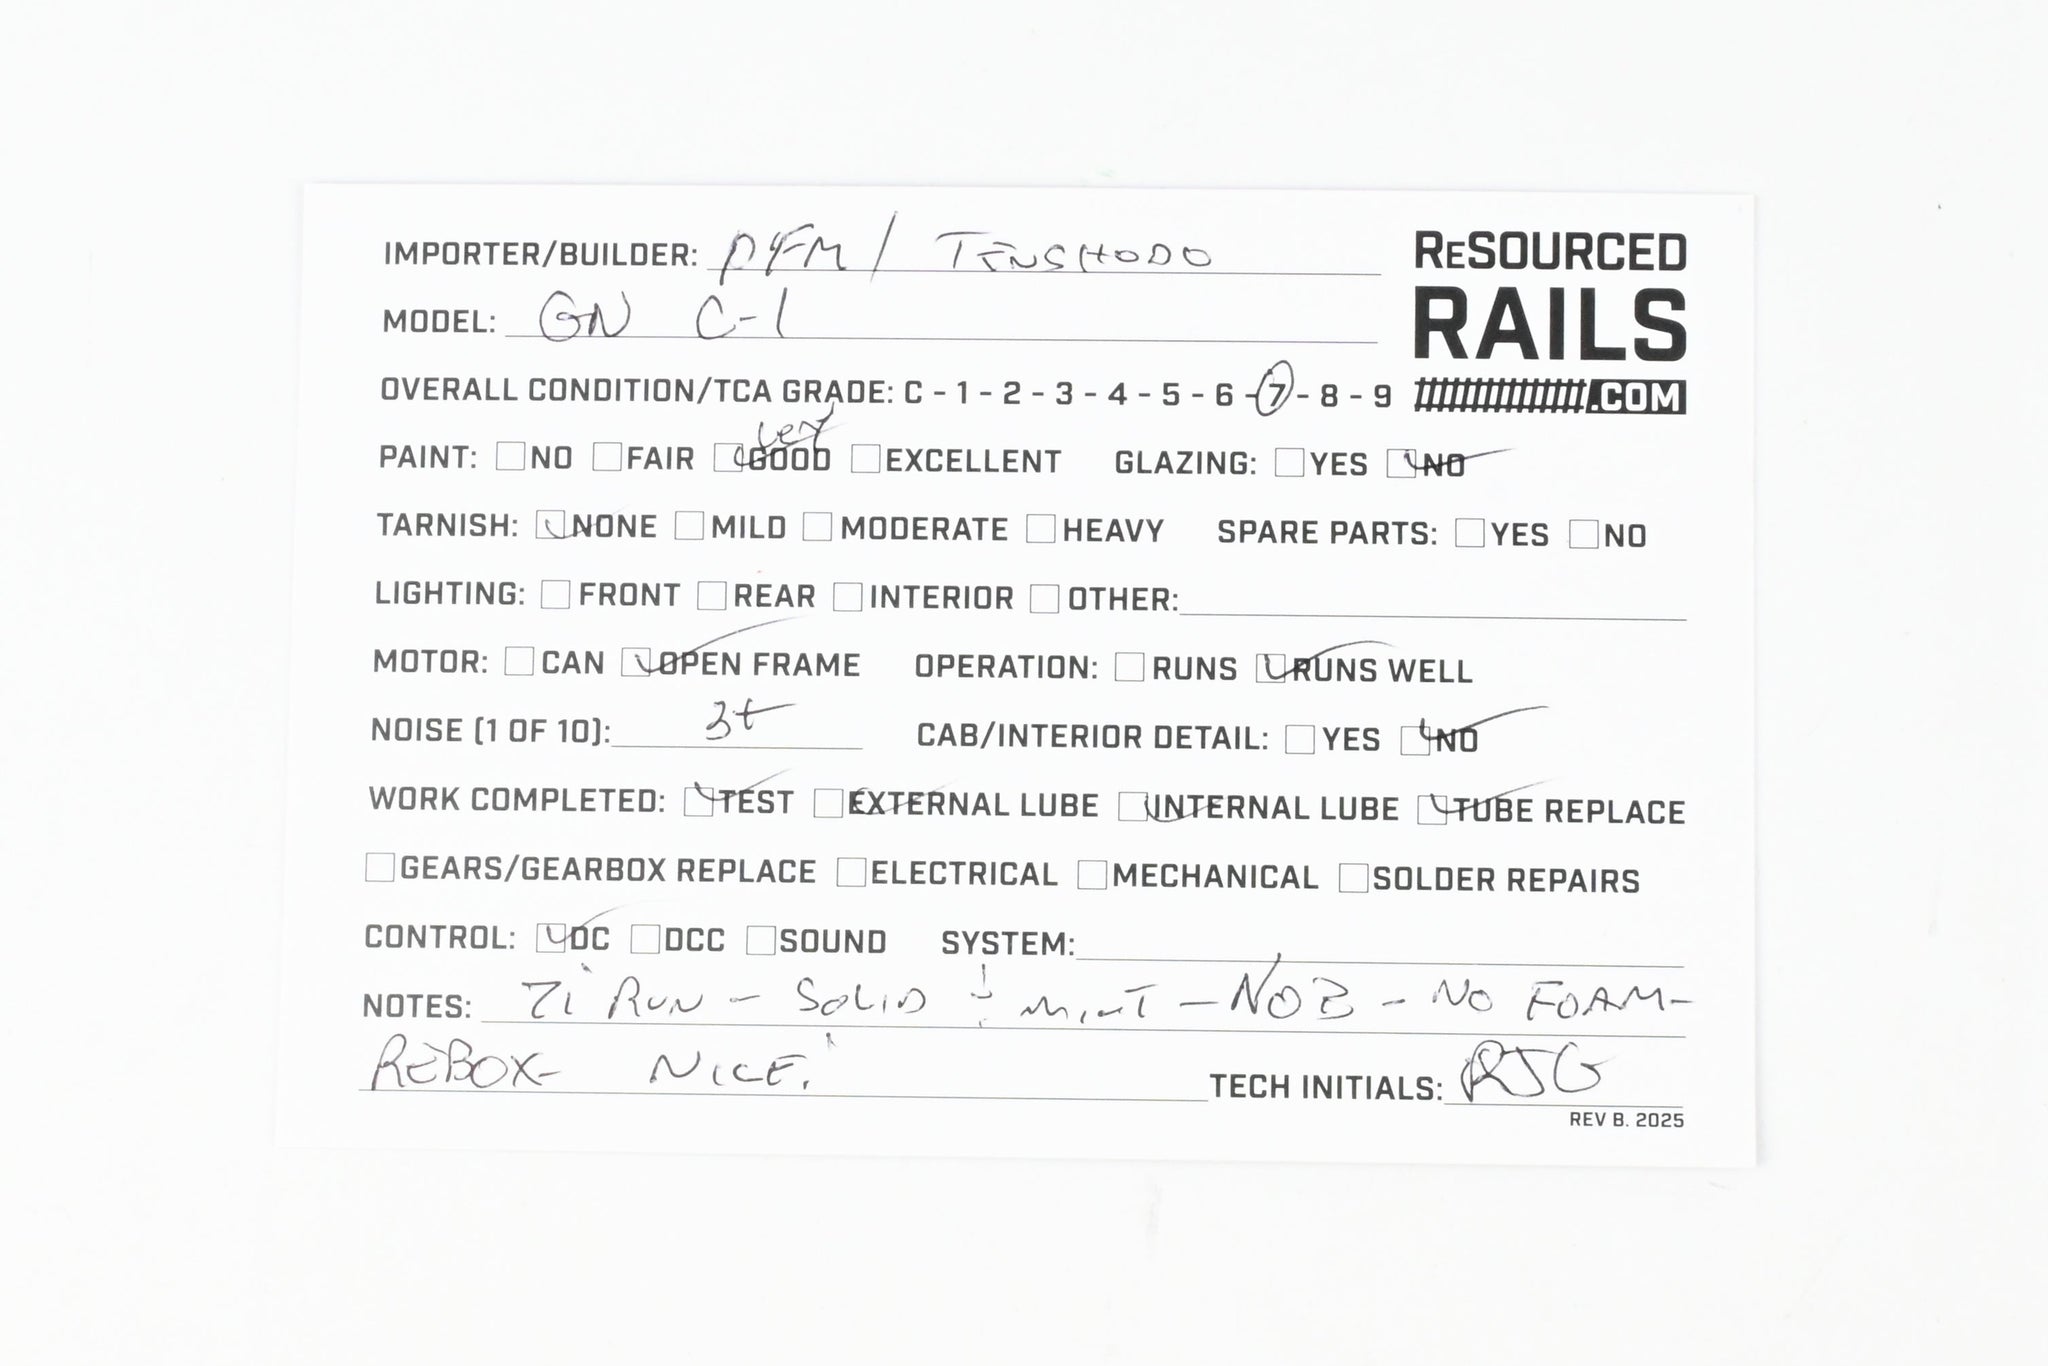 IMPORTER/BUILDER: PFM / TENSHODO
RESOURCED
RAILS
.COM
MODEL: GN C-1
OVERALL CONDITION/TCA GRADE: C - 1 - 2 - 3 - 4 - 5 - 6 - 7 - 8 - 9
very
PAINT: NO FAIR GOOD EXCELLENT GLAZING: YES NO
TARNISH: NONE MILD MODERATE HEAVY SPARE PARTS: YES NO
LIGHTING: FRONT REAR INTERIOR OTHER:
MOTOR: CAN OPEN FRAME OPERATION: RUNS RUNS WELL
NOISE (1 OF 10): 3+ CAB/INTERIOR DETAIL: YES NO
WORK COMPLETED: TEST EXTERNAL LUBE INTERNAL LUBE TUBE REPLACE
GEARS/GEARBOX REPLACE ELECTRICAL MECHANICAL SOLDER REPAIRS
CONTROL: DC DCC SOUND SYSTEM:
NOTES: RUN - SOLID & MINT - NOB - NO FOAM -
REBOX - NICE! TECH INITIALS: RJG
REV B. 2025